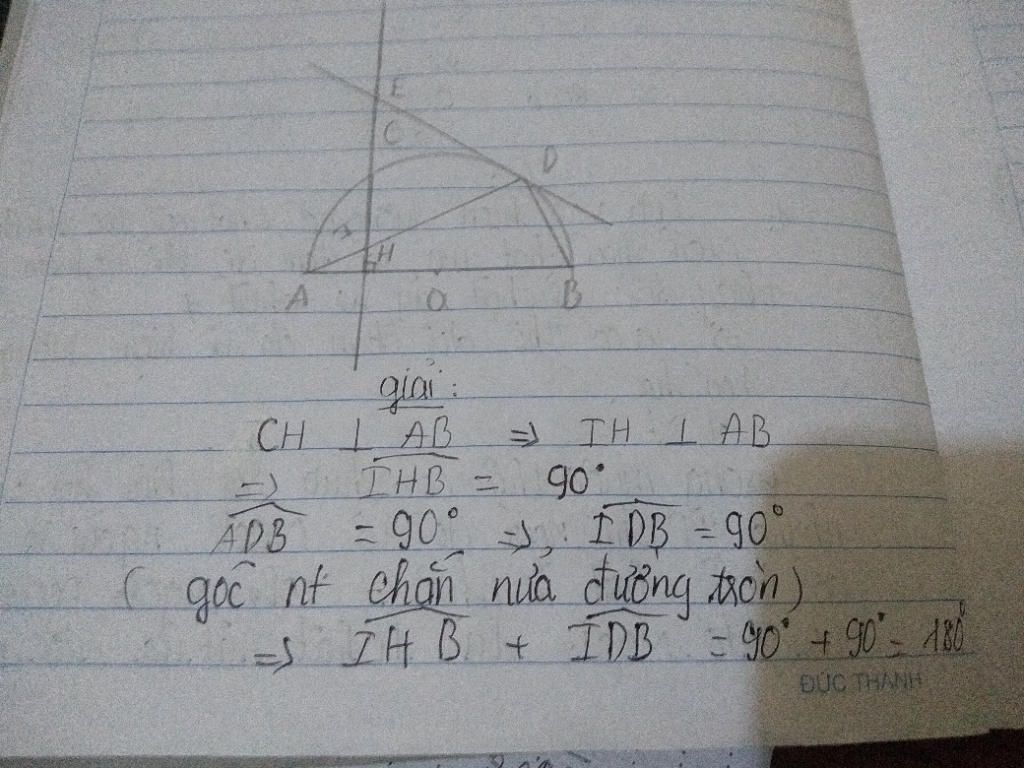 E
C
D
I
H
A O B
giải:
CH ⊥ AB => IH ⊥ AB
=> IHB = 90°
ADB = 90° => IDB = 90°
( góc nt chắn nửa đường tròn)
=> IHB + IDB = 90° + 90° = 180°
ĐỨC THANH